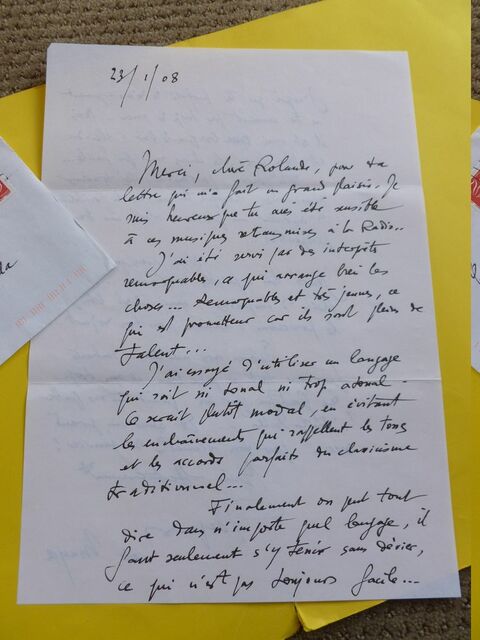 23/1/08
Merci, chère Rolande, pour ta
lettre qui m'a fait un grand plaisir. Je
suis heureux que tu aies été sensible
à ces musiques retransmises à la Radio..
J'ai été servi par des interprètes
remarquables, ce qui arrange bien les
choses... Remarquables et très jeunes, ce
qui est prometteur car ils sont pleins de
talent...
J'ai essayé d'utiliser un langage
qui soit ni tonal ni trop atonal -
Ce serait plutôt modal, en évitant
les enchaînements qui rappellent les tons
et les accords parfaits du classicisme
traditionnel...
Finalement on peut tout
dire dans n'importe quel langage, il
faut seulement s'y tenir sans dévier,
ce qui n'est pas toujours facile...